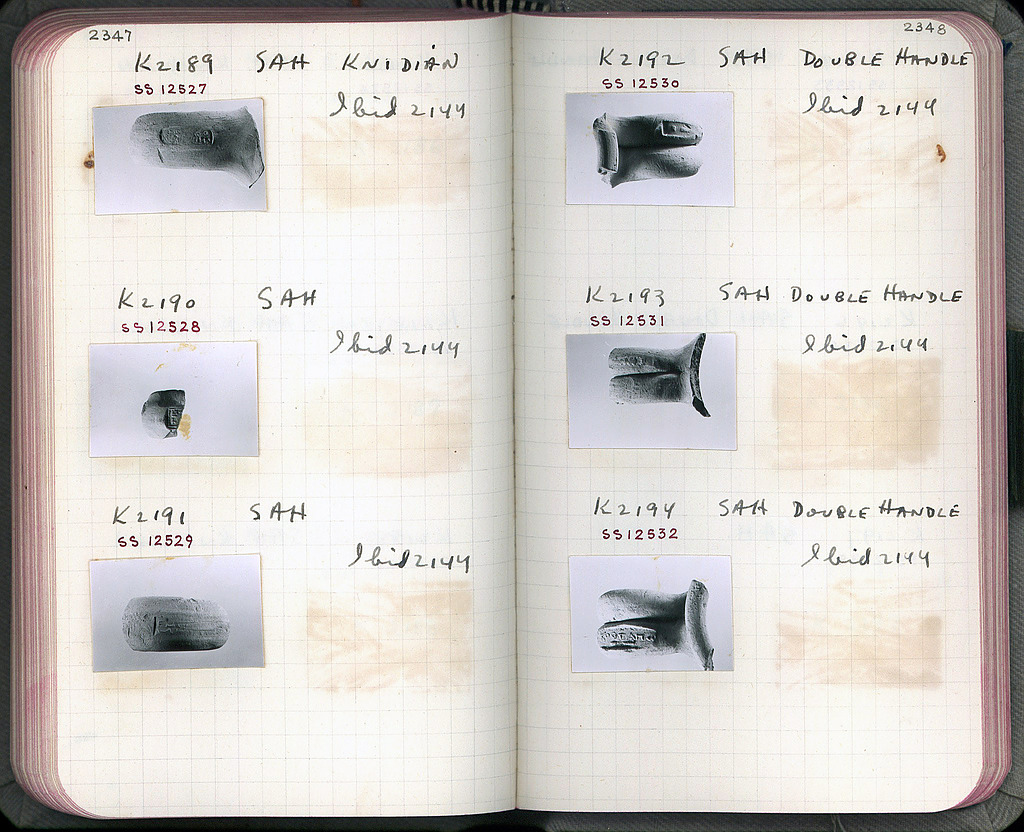 2347
K2189 SAH KNIDIAN
SS 12527
Ibid 2144
K2190 SAH
SS 12528
Ibid 2144
K2191 SAH
SS 12529
Ibid 2144
2348
K2192 SAH DOUBLE HANDLE
SS 12530
Ibid 2144
K2193 SAH DOUBLE HANDLE
SS 12531
Ibid 2144
K2194 SAH DOUBLE HANDLE
SS 12532
Ibid 2144